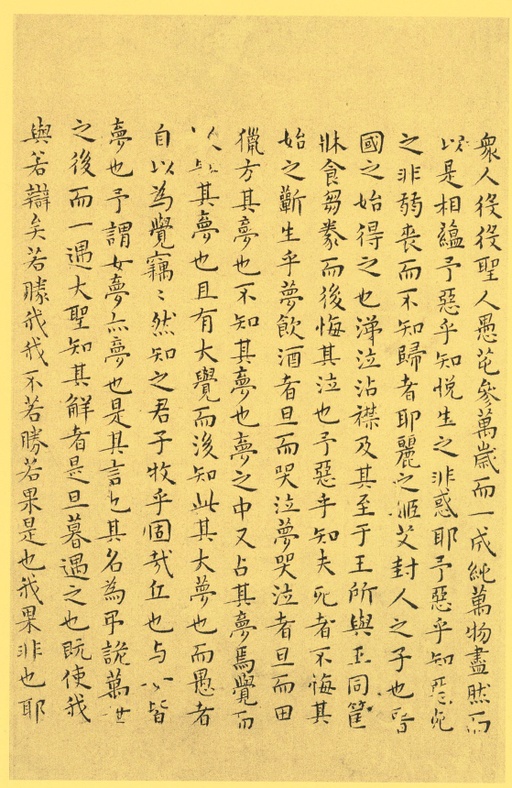 衆人役役聖人愚芚參萬歲而一成純萬物盡然而
以是相蘊予惡乎知悅生之非惑耶予惡乎知惡死
之非弱喪而不知歸者耶麗之姬艾封人之子也晉
國之始得之也涕泣沾襟及其至于王所與王同筐
牀食芻豢而後悔其泣也予惡乎知夫死者不悔其
始之蘄生乎夢飲酒者旦而哭泣夢哭泣者旦而田
獵方其夢也不知其夢也夢之中又占其夢焉覺而
其夢也且有大覺而後知此其大夢也而愚者
自以為覺竊竊然知之君子牧乎固哉丘也与皆
夢也予謂女夢亦夢也是其言也其名為弔詭萬世
之後而一遇大聖知其解者是旦暮遇之也既使我
與若辯矣若勝我我不若勝若果是也我果非也耶